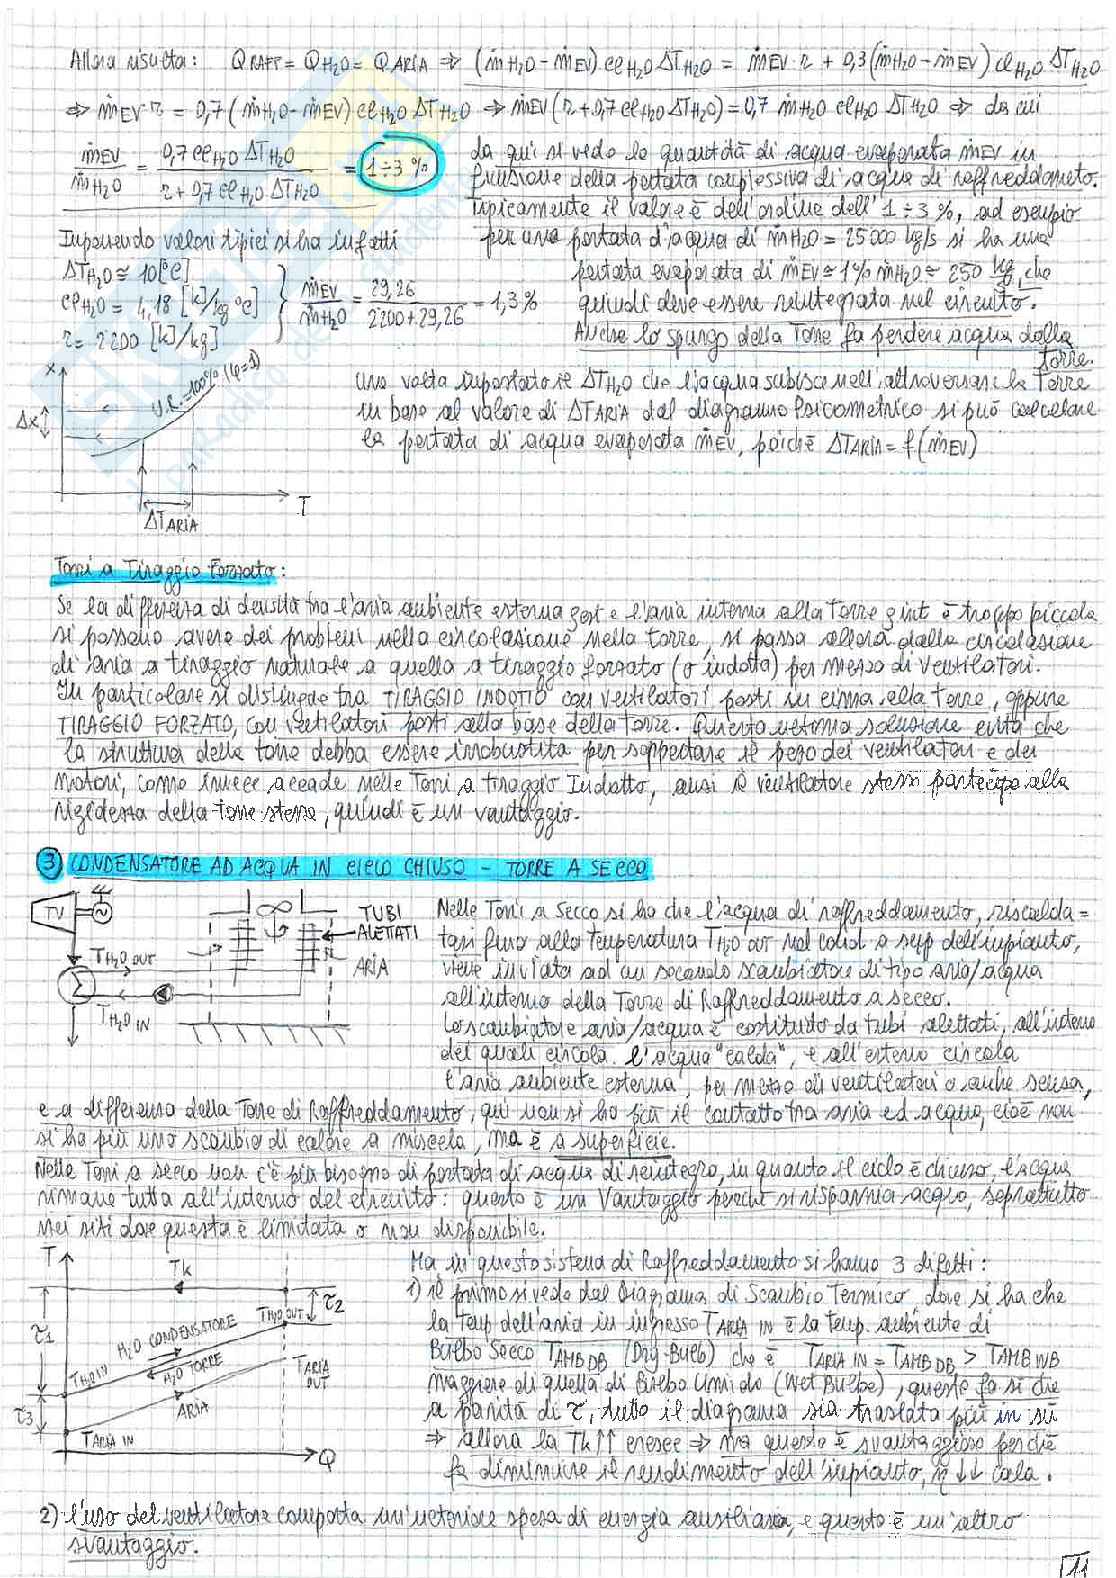 Allora risulta: QRAFF = QH2O = QARIA ⇒ (ṁH2O - ṁEV) clH2O ΔTH2O = ṁEV·r + 0,3(ṁH2O - ṁEV) clH2O ΔTH2O
⇒ ṁEV·r = 0,7 (ṁH2O - ṁEV) clH2O ΔTH2O ⇒ ṁEV (r + 0,7 clH2O ΔTH2O) = 0,7 ṁH2O clH2O ΔTH2O ⇒ da cui
ṁEV / ṁH2O = 0,7 clH2O ΔTH2O / r + 0,7 clH2O ΔTH2O = 1÷3 %
da qui si vede la quantità di acqua evaporata ṁEV in
funzione della portata complessiva di acqua di raffreddamento.
Tipicamente il valore è dell'ordine dell'1÷3 %, ad esempio
per una portata d'acqua di ṁH2O = 25000 kg/s si ha una
portata evaporata di ṁEV ≅ 1% ṁH2O ≅ 250 kg/s, che
quindi deve essere reintegrata nel circuito.
Anche lo spurgo della Torre fa perdere acqua dalla
torre.
Imponendo valori tipici si ha infatti
ΔTH2O ≅ 10 [°C]
clH2O = 4,18 [kJ/kg °C]
r = 2200 [kJ/kg]
ṁEV / ṁH2O = 29,26 / 2200 + 29,26 = 1,3 %
x
U.R. = 100% (φ=1)
Δx
ΔTARIA
T
Una volta impostato il ΔTH2O che l'acqua subisce nell'attraversare la Torre
in base al valore di ΔTARIA dal diagramma Psicometrico si può calcolare
la portata di acqua evaporata ṁEV, poichè ΔTARIA = f(ṁEV)
Torri a Tiraggio Forzato:
Se la differenza di densità tra l'aria ambiente esterna ρest e l'aria interna alla torre ρint è troppo piccola
si possono avere dei problemi nella circolazione nella torre, si passa allora dalla circolazione
di aria a tiraggio naturale a quella a tiraggio forzato (o indotto) per mezzo di ventilatori.
In particolare si distingue tra TIRAGGIO INDOTTO con ventilatori posti in cima alla torre, oppure
TIRAGGIO FORZATO, con ventilatori posti alla base della torre. Questa ultima soluzione evita che
la struttura della torre debba essere irrobustita per sopportare il peso dei ventilatori e dei
motori, come invece accade nelle Torri a tiraggio Indotto, anzi il ventilatore stesso partecipa alla
rigidezza della torre stessa, quindi è un vantaggio.
3 CONDENSATORE AD ACQUA IN CICLO CHIUSO - TORRE A SECCO
TV
TH2O OUT
TH2O IN
TUBI
ALETTATI
ARIA
Nelle Torri a Secco si ha che l'acqua di raffreddamento, riscalda=
tasi fino alla temperatura TH2O OUT nel cond. a sup dell'impianto,
viene inviata ad un secondo scambiatore di tipo aria/acqua
all'interno della Torre di Raffreddamento a secco.
Lo scambiatore aria/acqua è costituito da tubi alettati, all'interno
dei quali circola l'acqua "calda", e all'esterno circola
l'aria ambiente esterna, per mezzo di ventilatori o anche senza,
e a differenza della Torre di Raffreddamento, qui non si ha più il contatto tra aria ed acqua, cioè non
si ha più uno scambio di calore a miscela, ma è a superficie.
Nelle Torri a secco non c'è più bisogno di portata di acqua di reintegro, in quanto il ciclo è chiuso, l'acqua
rimane tutta all'interno del circuito: questo è un vantaggio perchè si risparmia acqua, soprattutto
nei siti dove questa è limitata o non disponibile.
T
Tk
τ1
τ2
TH2O OUT
H2O CONDENSATORE
H2O TORRE
TH2O IN
TARIA OUT
ARIA
τ3
TARIA IN
Q
Ma in questo sistema di Raffreddamento si hanno 3 difetti:
1) il primo si vede dal Diagramma di Scambio Termico, dove si ha che
la temp dell'aria in ingresso TARIA IN è la temp. ambiente di
Bulbo Secco TAMB DB (Dry-Bulb) che è TARIA IN = TAMB DB > TAMB WB
maggiore di quella di Bulbo Umido (Wet Bulb), questo fa sì che
a parità di τ, tutto il diagramma sia traslato più in su
⇒ allora la Tk↑↑ cresce ⇒ ma questo è svantaggioso perchè
fa diminuire il rendimento dell'impianto, η↓↓ cala.
2) l'uso del ventilatore comporta un'ulteriore spesa di energia ausiliaria, e questo è un altro
svantaggio.
11